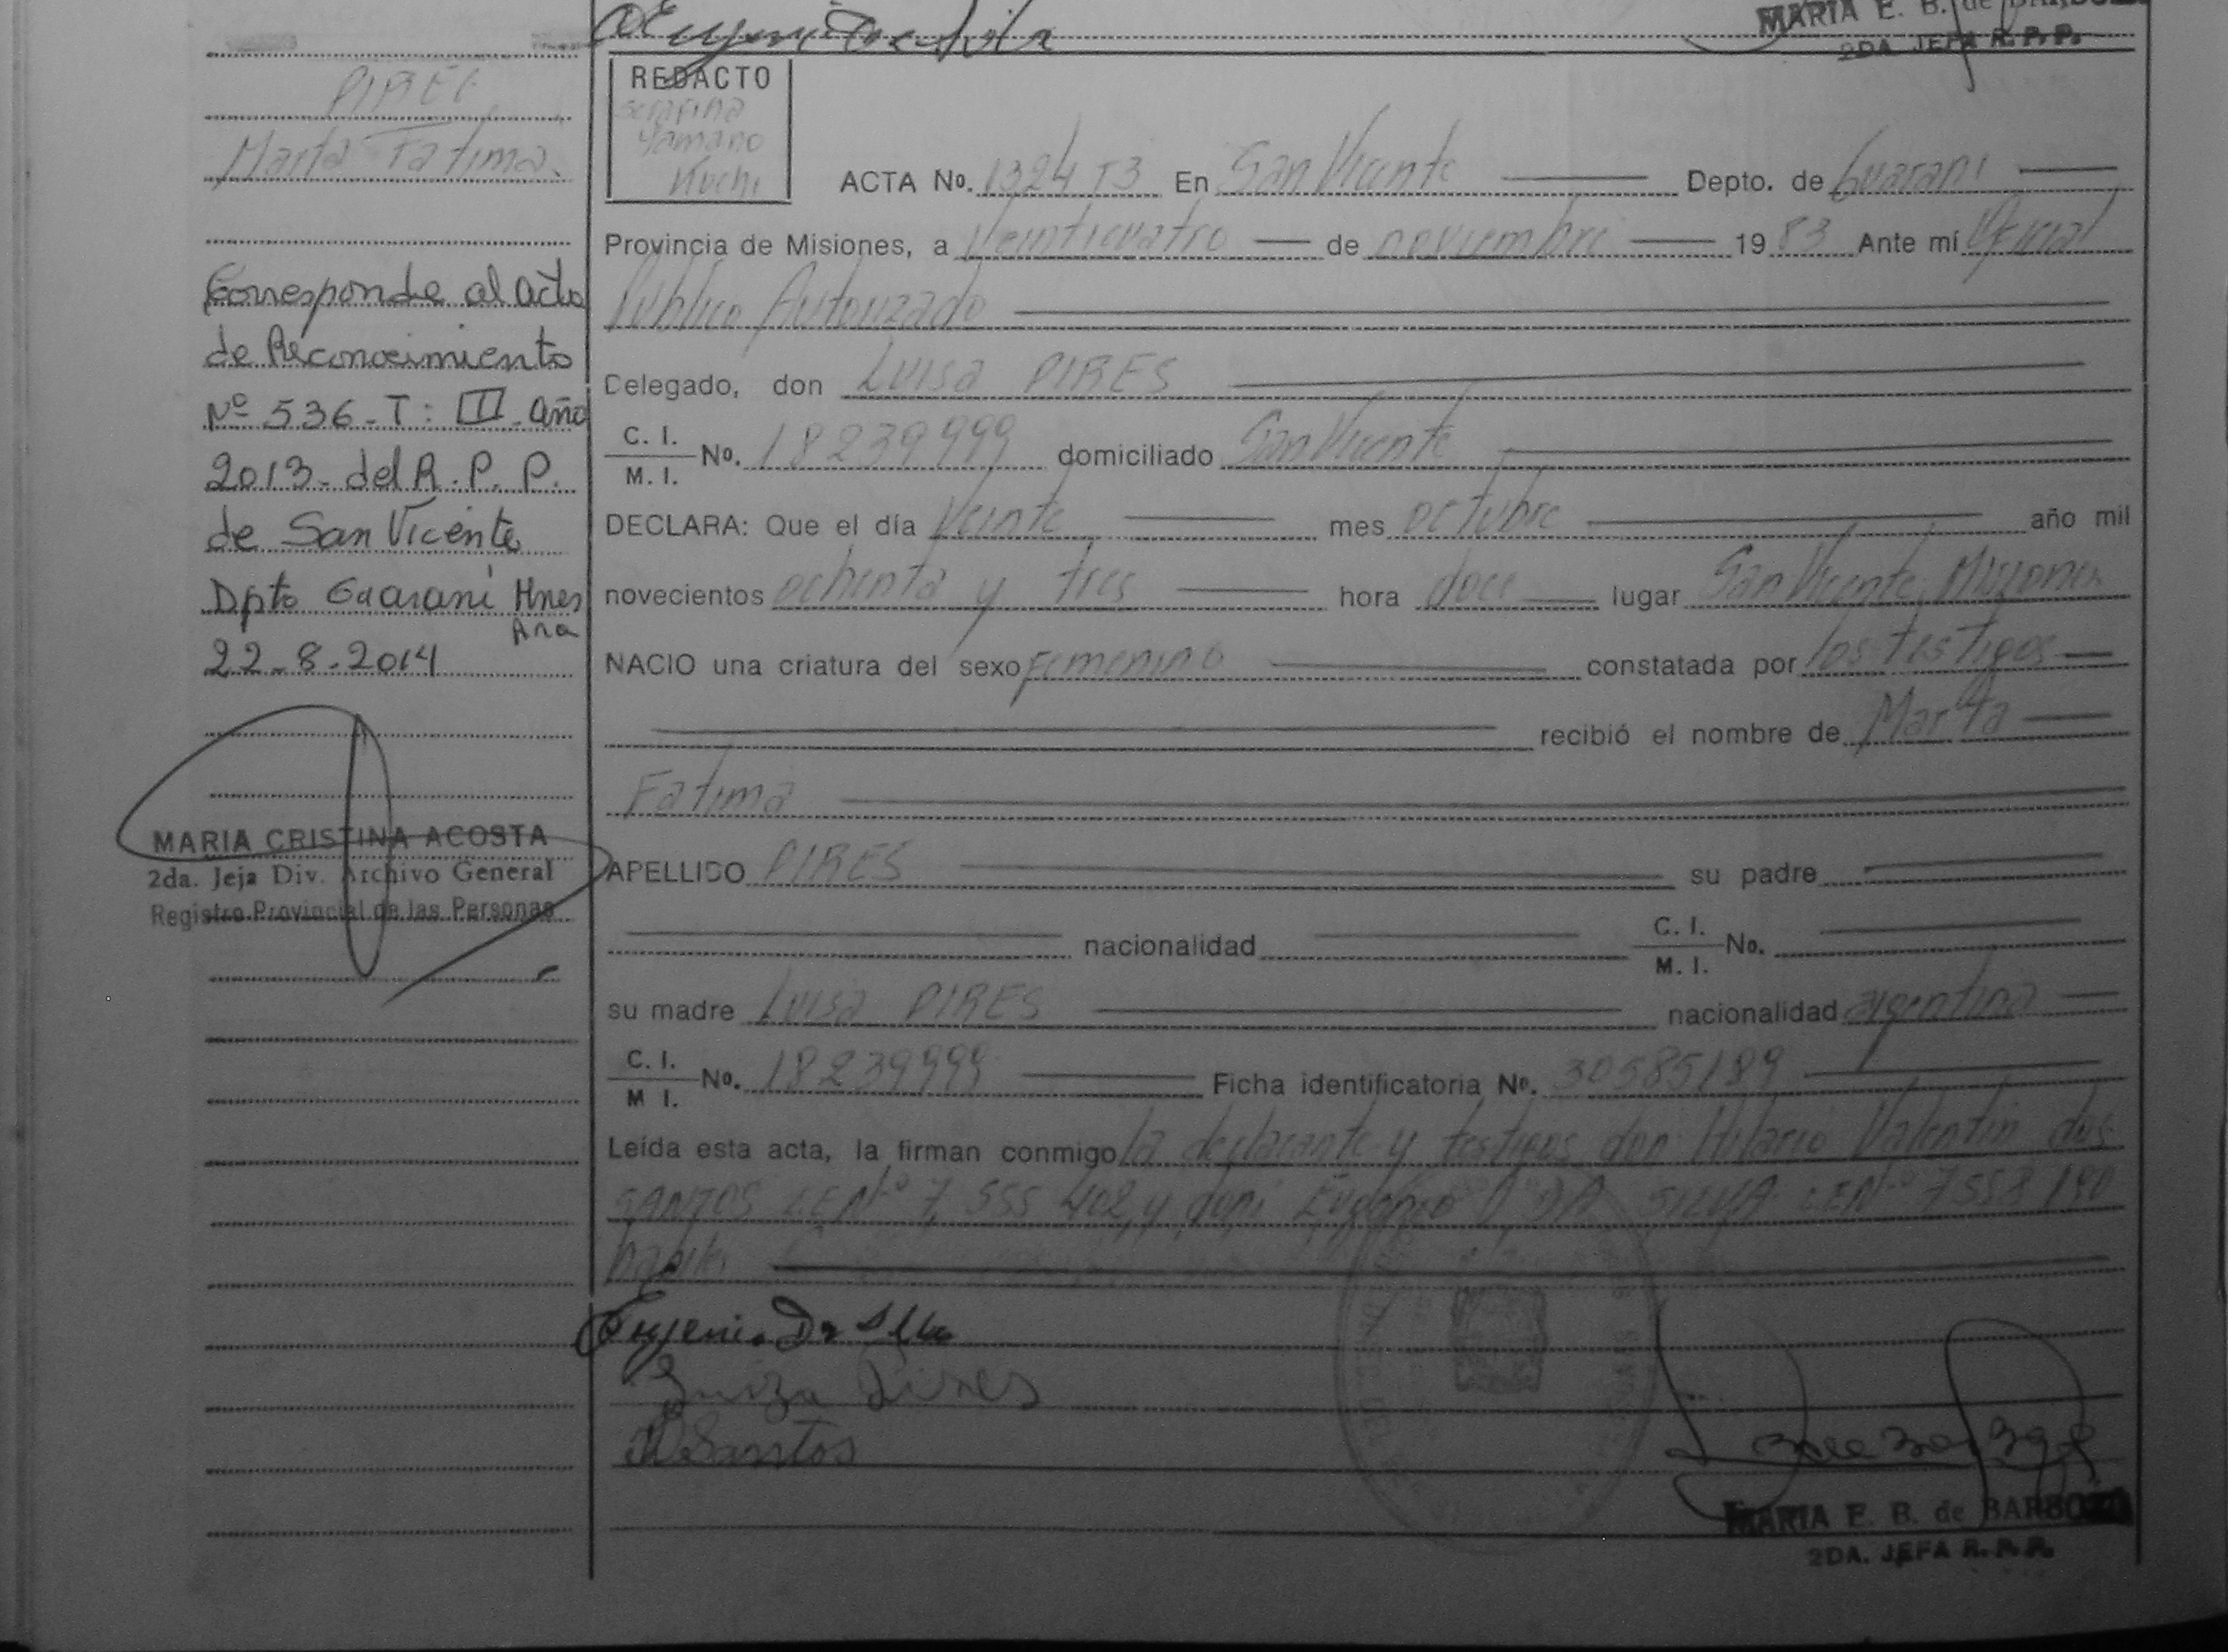 MARIA E. B. de BARBOZA
2DA. JEFA R. P. P.
PIRES
Marta Fatima
Corresponde al acta
de Reconocimiento
Nº 536-T: III-año
2013-del R. P. P.
de San Vicente
Dpto Guarani Mnes
22-8-2014
MARIA CRISTINA ACOSTA
2da. Jefa Div. Archivo General
Registro Provincial de las Personas
REDACTO
Serafina
ACTA No. 1324 T3 En San Vicente Depto. de Guarani
Provincia de Misiones, a Veinticuatro de noviembre 1983 Ante mí Oficial
Público Autorizado
Delegado, don Luisa PIRES
C. I.
M. I. No. 18239999 domiciliado San Vicente
DECLARA: Que el día Veinte mes octubre año mil
novecientos ochenta y tres hora doce lugar San Vicente, Misiones
NACIO una criatura del sexo Femenino constatada por los testigos
recibió el nombre de Marta
Fatima
APELLIDO PIRES su padre
nacionalidad C. I.
M. I. No.
su madre Luisa PIRES nacionalidad argentina
C. I.
M I. No. 18239999 Ficha identificatoria No. 30585189
Leída esta acta, la firman conmigo la declarante y testigos don Hilario Valentin dos
SANTOS L.E Nº 7 555 402 y don Eugenio DA SILVA L.E Nº 7558190
Eugenio Da Silva
Luiza Pires
Santos
MARIA E. B. de BARBOZA
2DA. JEFA R. P. P.